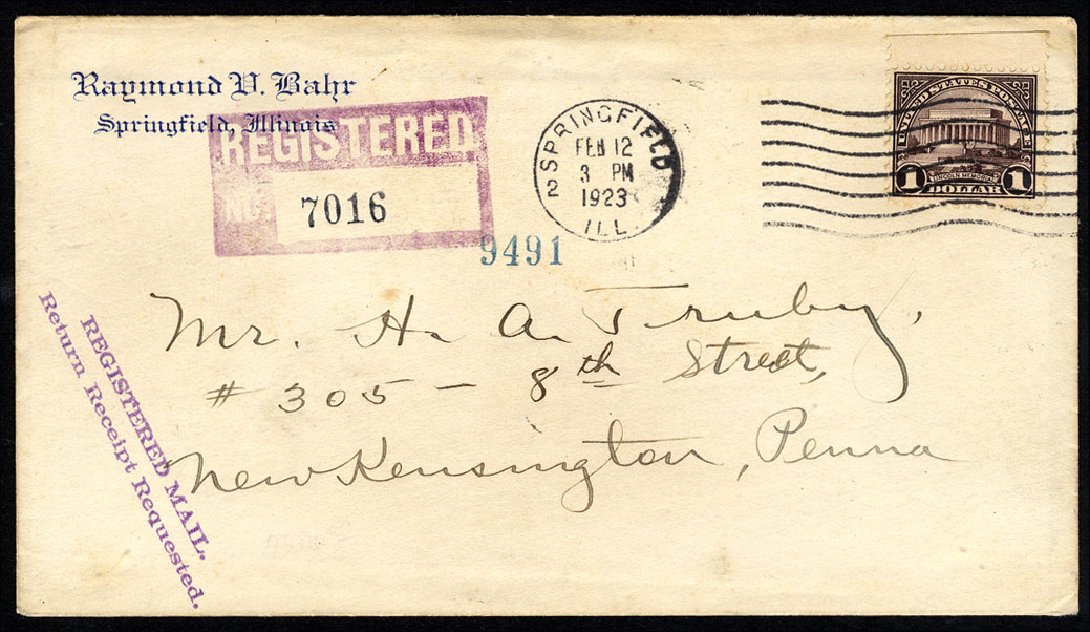 Raymond V. Bahr
Springfield, Illinois
REGISTERED
NO.
7016
SPRINGFIELD
FEB 12
3 PM
1923
ILL.
2
UNITED STATES POSTAGE
LINCOLN MEMORIAL
1 DOLLAR 1
9491
Mr. H. A. Truby,
# 305 - 8th Street,
New Kensington, Penna
REGISTERED MAIL.
Return Receipt Requested.